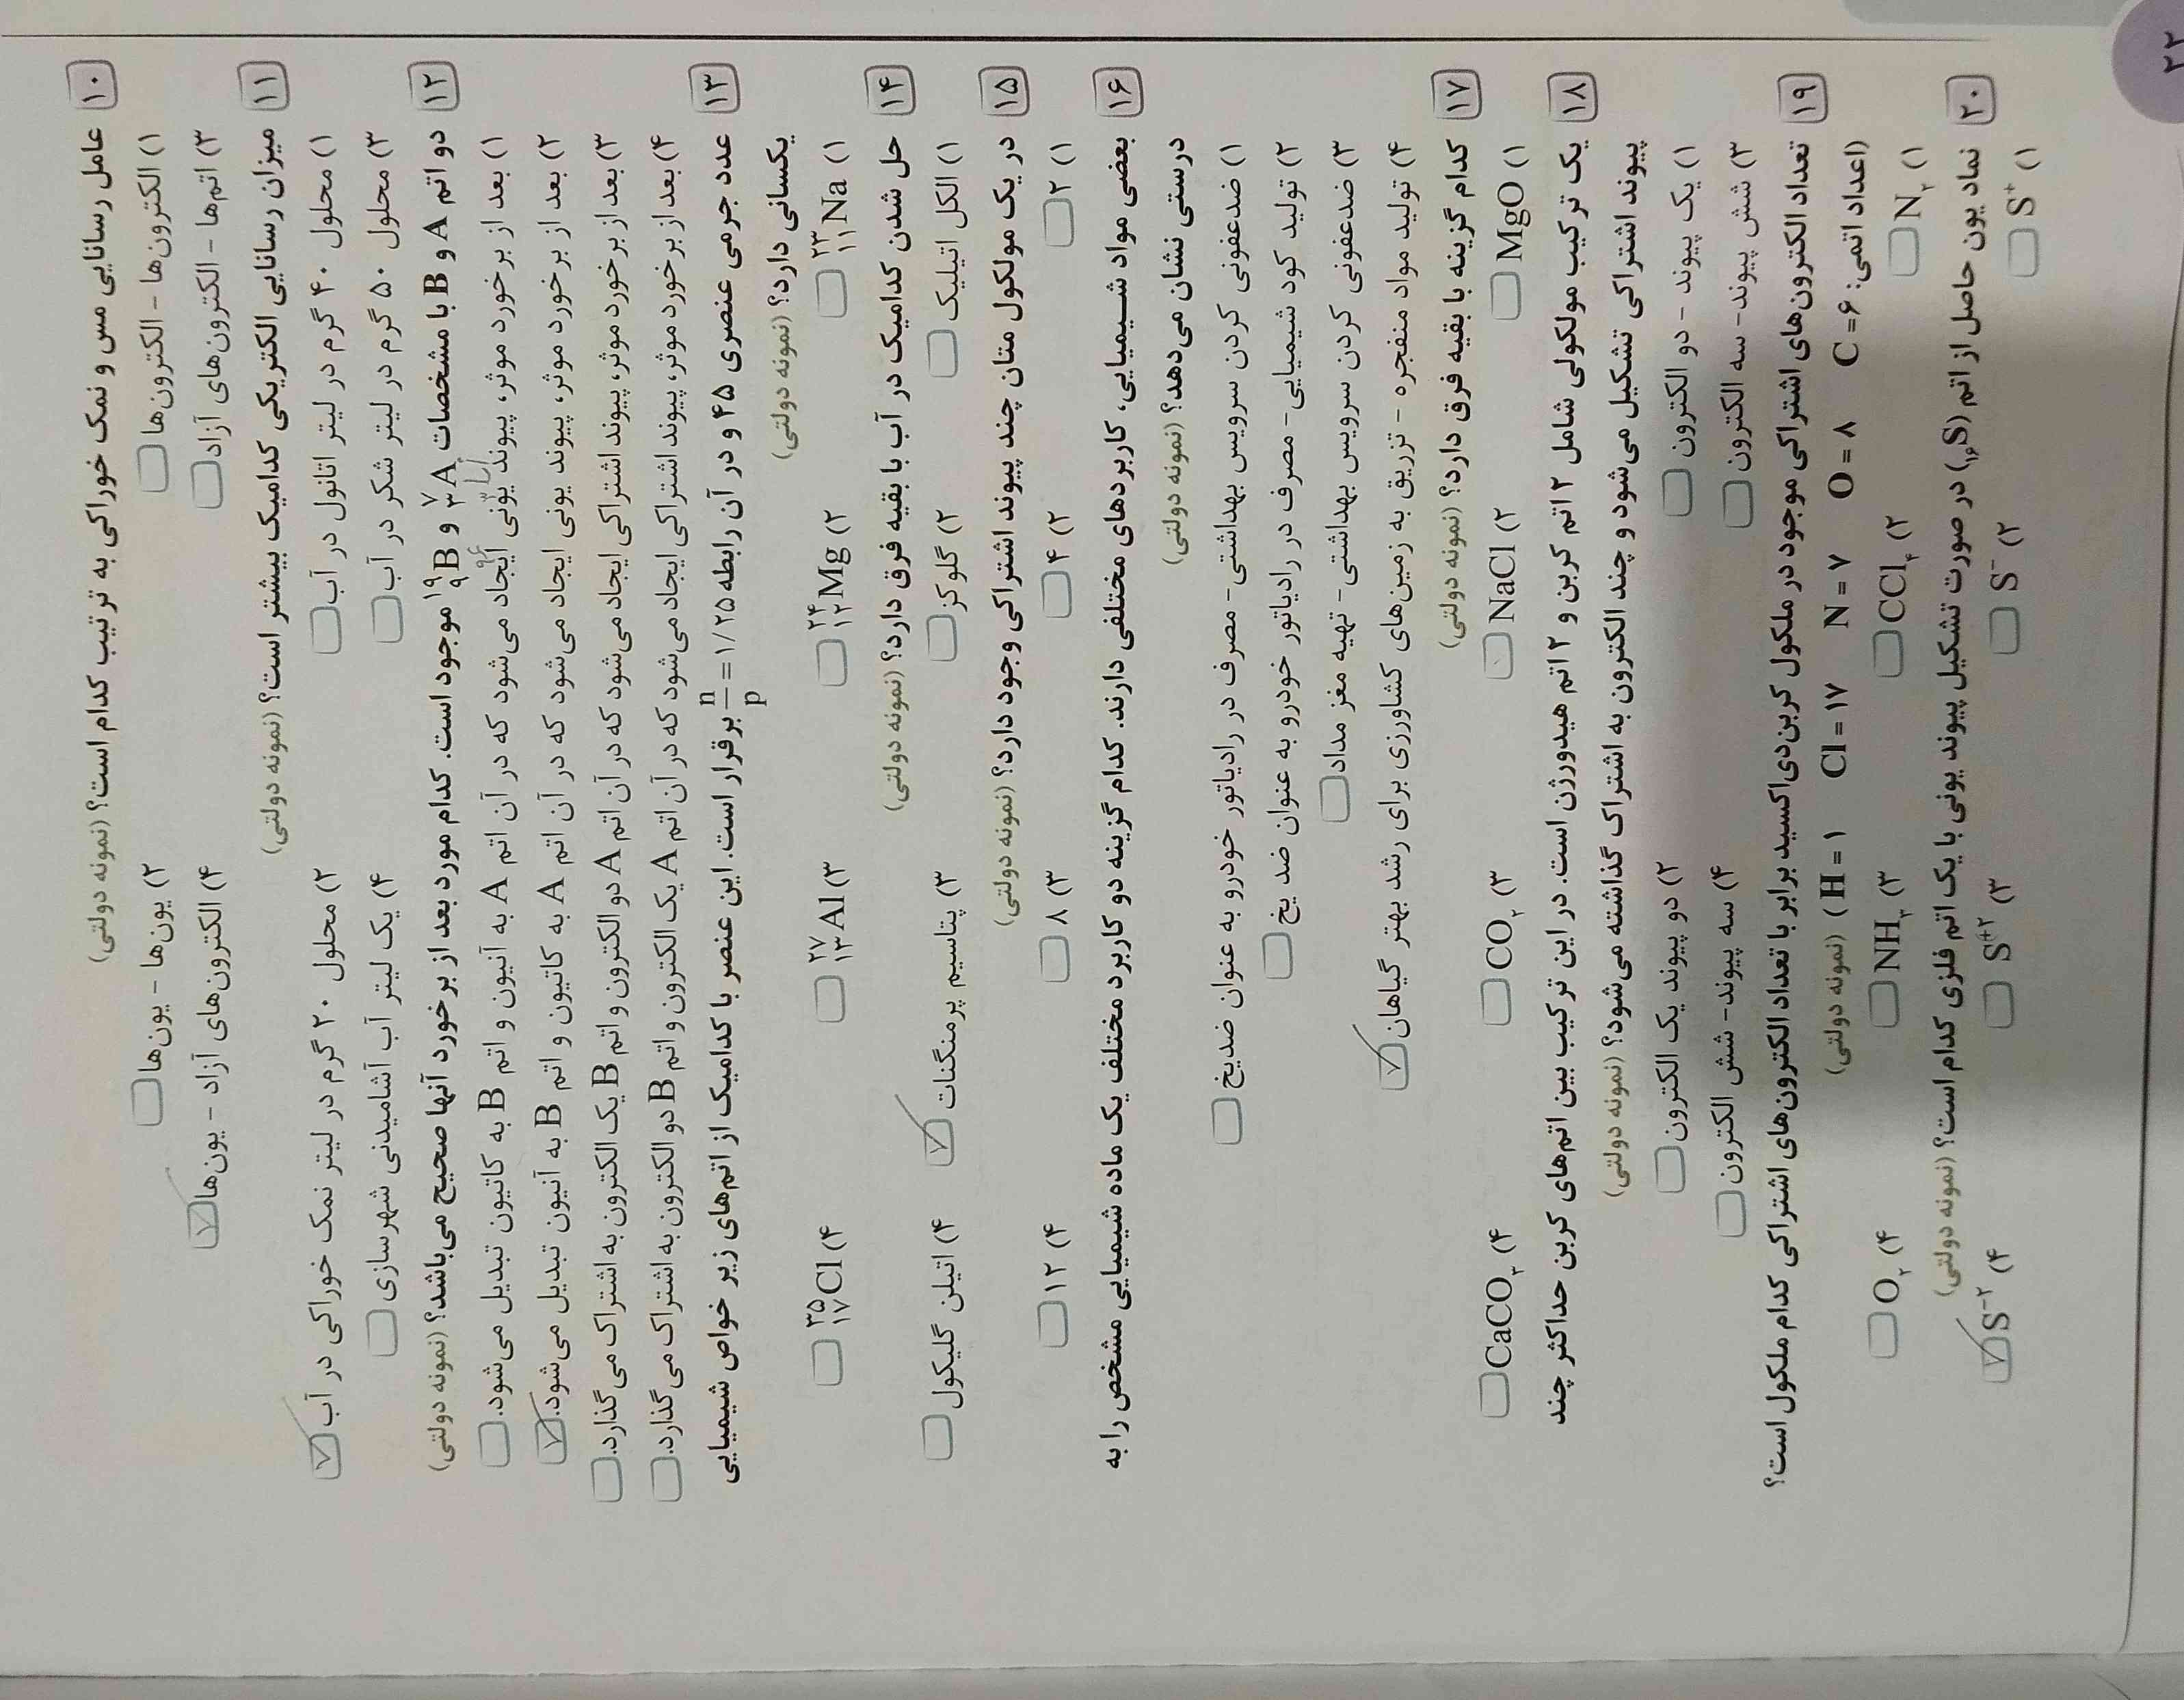 ۱۰ عامل رسانایی مس و نمک خوراکی به ترتیب کدام است؟ (نمونه دولتی)
۱) الکترون‌ها - الکترون‌ها ۲) یون‌ها - یون‌ها
۳) اتم‌ها - الکترون‌های آزاد ۴) الکترون‌های آزاد - یون‌ها
۱۱ میزان رسانایی الکتریکی کدامیک بیشتر است؟ (نمونه دولتی)
۱) محلول ۴۰ گرم در لیتر اتانول در آب ۲) محلول ۲۰ گرم در لیتر نمک خوراکی در آب
۳) محلول ۵۰ گرم در لیتر شکر در آب ۴) یک لیتر آب آشامیدنی شهرسازی
۱۲ دو اتم A و B با مشخصات ⁷₃A و ¹⁹₉B موجود است. کدام مورد بعد از برخورد آنها صحیح می‌باشد؟ (نمونه دولتی)
۱) بعد از برخورد موثر، پیوند یونی ایجاد می‌شود که در آن اتم A به آنیون و اتم B به کاتیون تبدیل می‌شود.
۲) بعد از برخورد موثر، پیوند یونی ایجاد می‌شود که در آن اتم A به کاتیون و اتم B به آنیون تبدیل می‌شود.
۳) بعد از برخورد موثر، پیوند اشتراکی ایجاد می‌شود که در آن اتم A دو الکترون و اتم B یک الکترون به اشتراک می‌گذارد.
۴) بعد از برخورد موثر، پیوند اشتراکی ایجاد می‌شود که در آن اتم A یک الکترون و اتم B دو الکترون به اشتراک می‌گذارد.
۱۳ عدد جرمی عنصری ۴۵ و در آن رابطه n/p = ۱/۲۵ برقرار است. این عنصر با کدامیک از اتم‌های زیر خواص شیمیایی
یکسانی دارد؟ (نمونه دولتی)
۱) ²³₁₁Na ۲) ²⁴₁₂Mg ۳) ²⁷₁₃Al ۴) ³⁵₁₇Cl
۱۴ حل شدن کدامیک در آب با بقیه فرق دارد؟ (نمونه دولتی)
۱) الکل اتیلیک ۲) گلوکز ۳) پتاسیم پرمنگنات ۴) اتیلن گلیکول
۱۵ در یک مولکول متان چند پیوند اشتراکی وجود دارد؟ (نمونه دولتی)
۱) ۲ ۲) ۴ ۳) ۸ ۴) ۱۲
۱۶ بعضی مواد شیمیایی، کاربردهای مختلفی دارند. کدام گزینه دو کاربرد مختلف یک ماده شیمیایی مشخص را به
درستی نشان می‌دهد؟ (نمونه دولتی)
۱) ضدعفونی کردن سرویس بهداشتی - مصرف در رادیاتور خودرو به عنوان ضدیخ
۲) تولید کود شیمیایی - مصرف در رادیاتور خودرو به عنوان ضد یخ
۳) ضدعفونی کردن سرویس بهداشتی - تهیه مغز مداد
۴) تولید مواد منفجره - تزریق به زمین‌های کشاورزی برای رشد بهتر گیاهان
۱۷ کدام گزینه با بقیه فرق دارد؟ (نمونه دولتی)
۱) MgO ۲) NaCl ۳) CO₂ ۴) CaCO₃
۱۸ یک ترکیب مولکولی شامل ۲ اتم کربن و ۲ اتم هیدورژن است. در این ترکیب بین اتم‌های کربن حداکثر چند
پیوند اشتراکی تشکیل می‌شود و چند الکترون به اشتراک گذاشته می‌شود؟ (نمونه دولتی)
۱) یک پیوند - دو الکترون ۲) دو پیوند یک الکترون
۳) شش پیوند - سه الکترون ۴) سه پیوند - شش الکترون
۱۹ تعداد الکترون‌های اشتراکی موجود در ملکول کربن‌دی‌اکسید برابر با تعداد الکترون‌های اشتراکی کدام ملکول است؟
(اعداد اتمی: C = ۶ O = ۸ N = ۷ Cl = ۱۷ H = ۱) (نمونه دولتی)
۱) N₂ ۲) CCl₄ ۳) NH₃ ۴) O₂
۲۰ نماد یون حاصل از اتم (₁₆S) در صورت تشکیل پیوند یونی با یک اتم فلزی کدام است؟ (نمونه دولتی)
۱) S⁺ ۲) S⁻ ۳) S⁺² ۴) S⁻²
۲۲